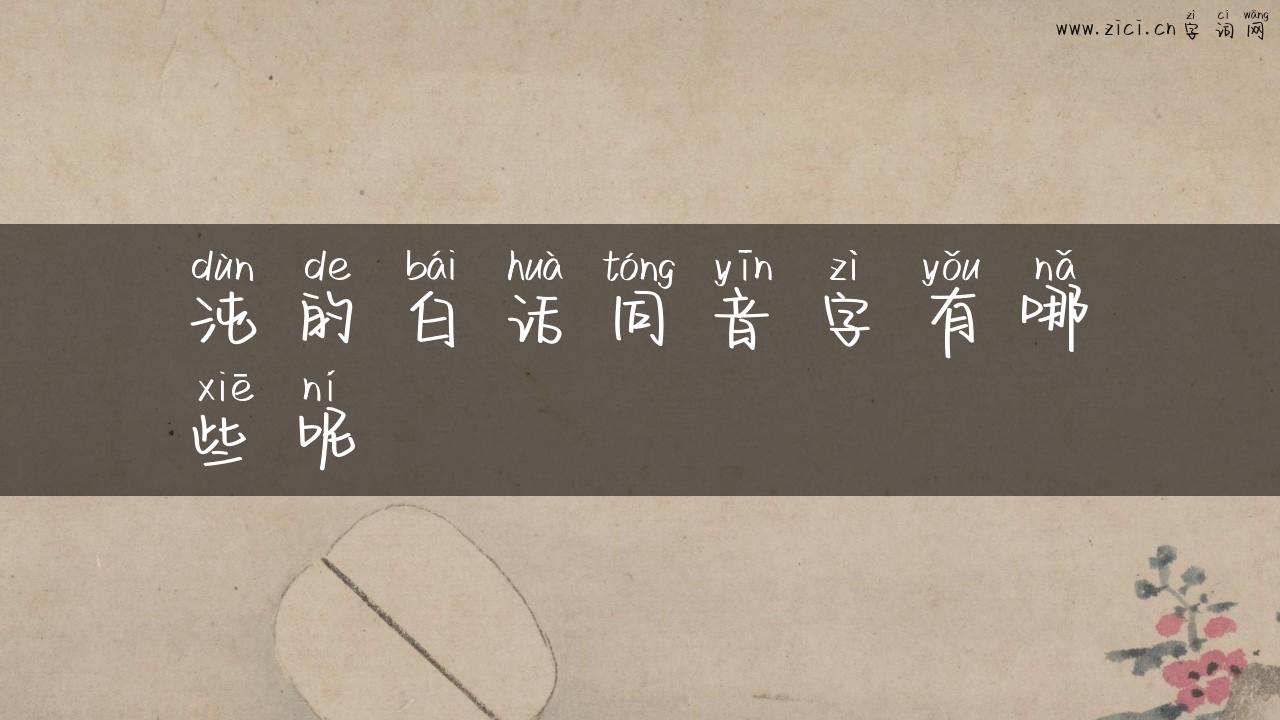 zì cí wǎng
www.zici.cn 字 词 网
dùn de bái huà tóng yīn zì yǒu nǎ
沌 的 白 话 同 音 字 有 哪
xiē ní
些 呢